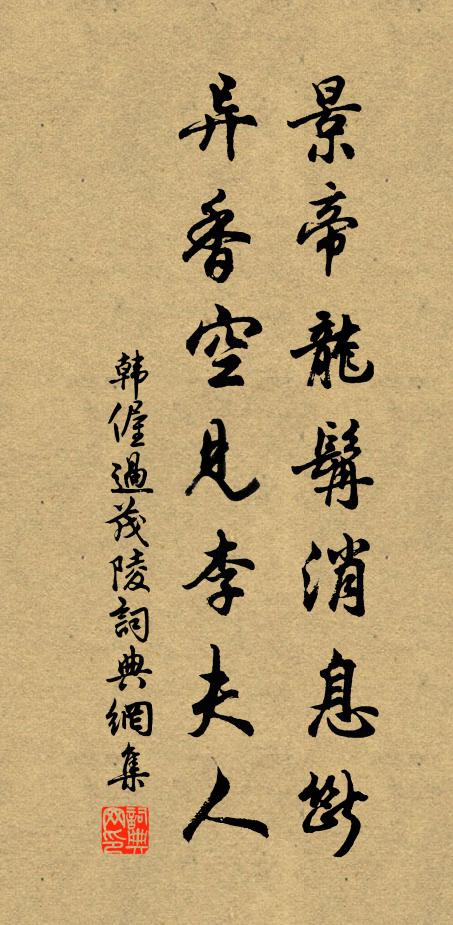 景帝龍髯消息斷
异香空見李夫人
韩偓過茂陵詞典網集
詞典网印